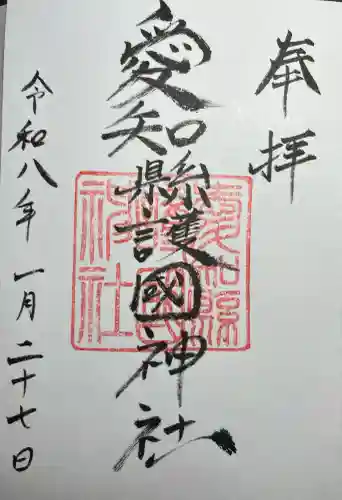 奉拝
愛知縣護國神社
令和八年一月二十七日
愛知縣
護國
神社